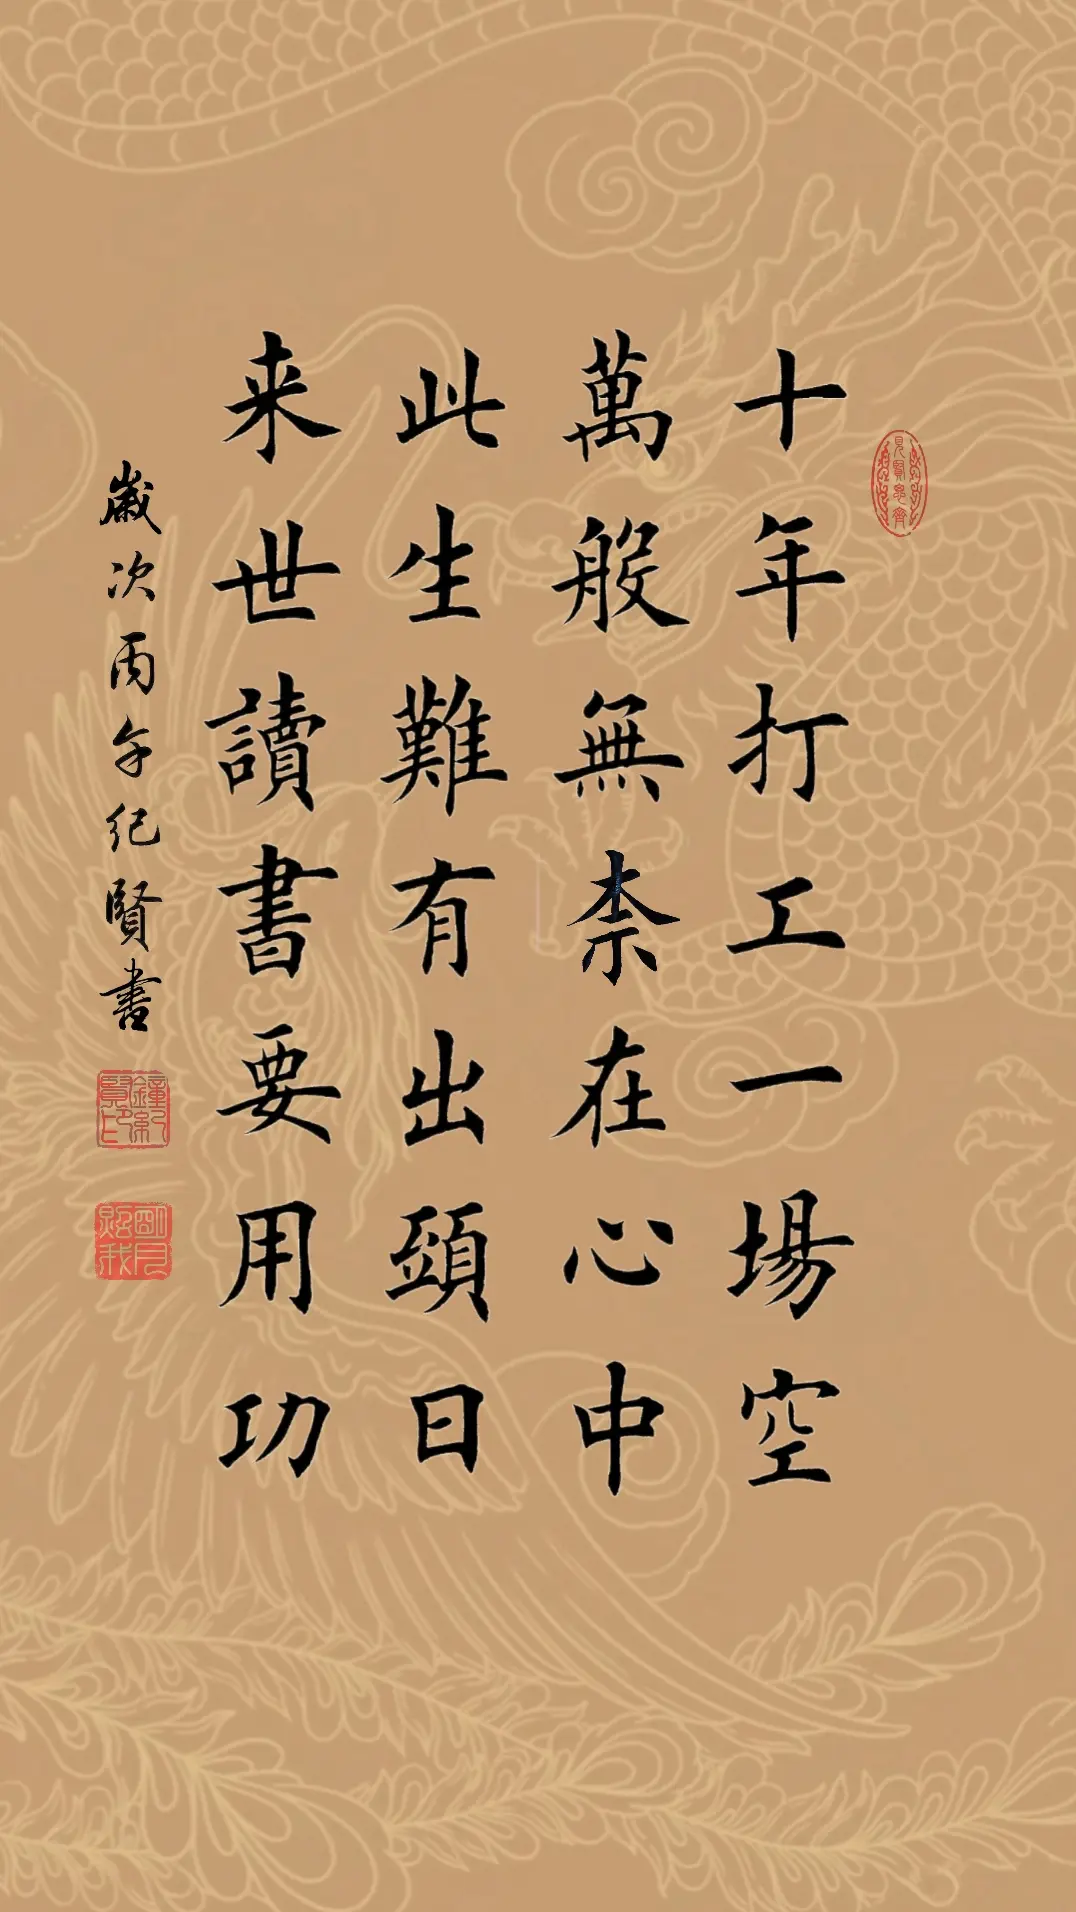 十年打工一場空
萬般無柰在心中
此生難有出頭日
来世讀書要用功
歲次丙午纪賢書
見賢思齊
鐘紀賢印